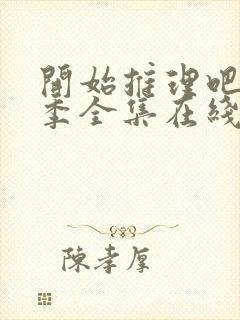 開始推理吧
季全集在綫
陳孝厚